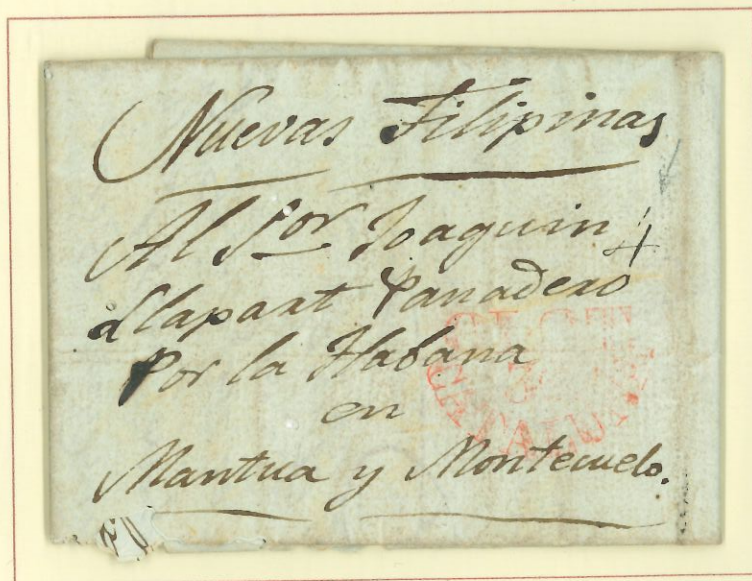 Nuevas Filipinas
Al Sor Joaquin
Llapart Panadero
Por la Habana
en
Mantua y Montecuelo.